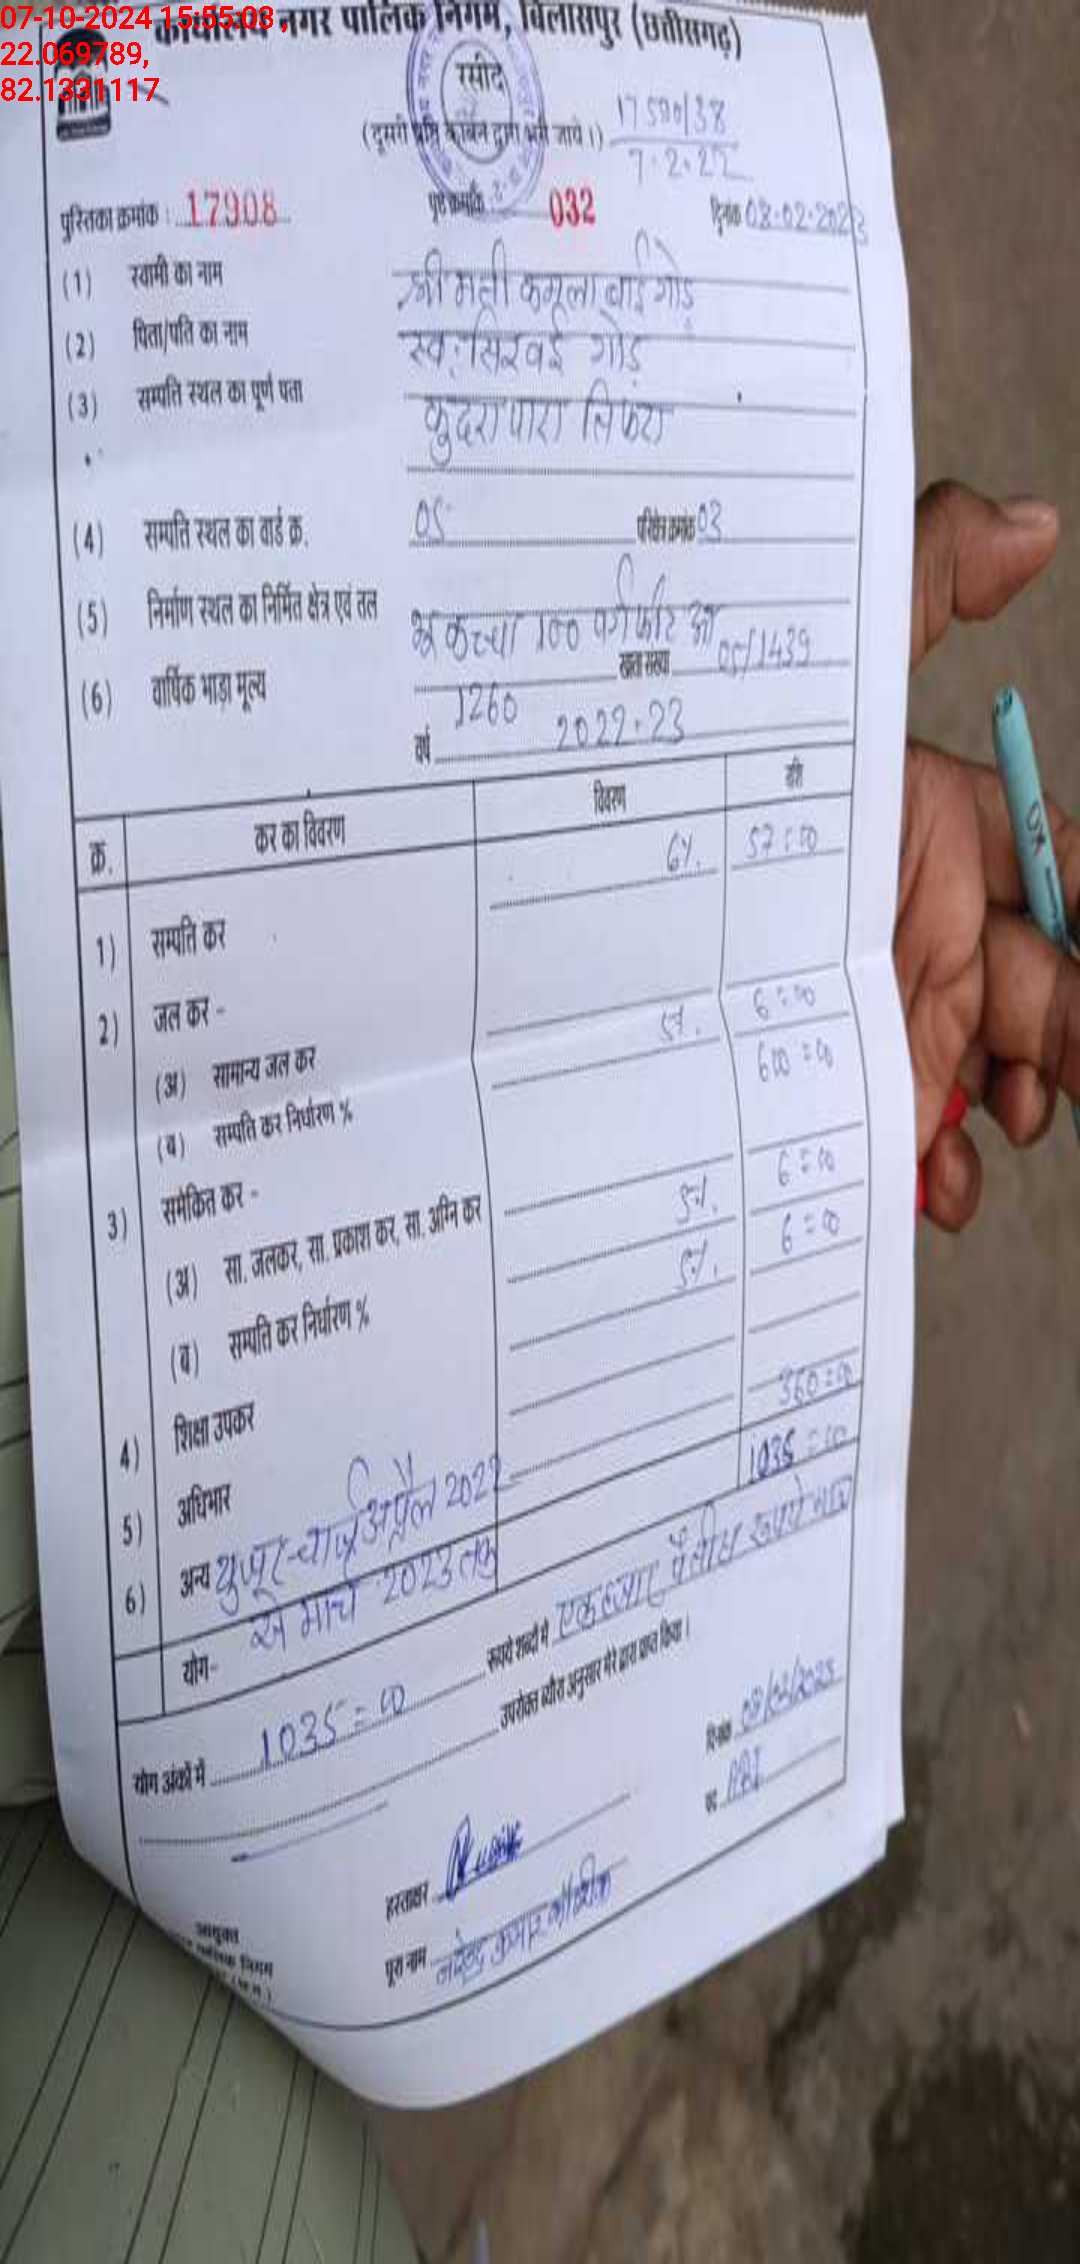 07-10-2024 15:55:03,
22.069789,
82.1331117
कार्यालय नगर पालिक निगम, बिलासपुर (छत्तीसगढ़)
रसीद
(दूसरी प्रति कार्बन द्वारा भरी जाये।)
17590/38
7.2.22
पुस्तिका क्रमांक : 17908 पृष्ठ क्रमांक 032 दिनांक 08-02-2023
(1) स्वामी का नाम श्रीमती कमूला बाई गोड़
(2) पिता/पति का नाम स्व. सिरवई गोड़
(3) सम्पति स्थल का पूर्ण पता कुदरापारा तिफरा
(4) सम्पति स्थल का वार्ड क्र. 05 परिक्षेत्र क्रमांक 03
(5) निर्माण स्थल का निर्मित क्षेत्र एवं तल कच्चा 100 वर्गफीट आ
(6) वार्षिक भाड़ा मूल्य 1260 खाता संख्या 05/1439
वर्ष 2022-23
क्र. कर का विवरण विवरण राशि
6%. 57=00
1) सम्पति कर
2) जल कर -
(अ) सामान्य जल कर 5%. 6=00
(ब) सम्पति कर निर्धारण % 600=00
3) समेकित कर -
(अ) सा. जलकर, सा. प्रकाश कर, सा. अग्नि कर 5%. 6=00
(ब) सम्पति कर निर्धारण % 5%. 6=00
4) शिक्षा उपकर
5) अधिभार
6) अन्य युजर-चार्ज अप्रैल 2022 360=00
से मार्च 2023 तक
योग- 1035=00
योग अंकों में 1035=00 रूपये शब्दों में एक हजार पैंतीस रूपये मात्र
उपरोक्त ब्यौरा अनुसार मेरे द्वारा प्राप्त किया।
दिनांक 08/02/2023
हस्ताक्षर पद ARI
पूरा नाम नरेन्द्र कुमार कौशिक
आयुक्त
पालिक निगम